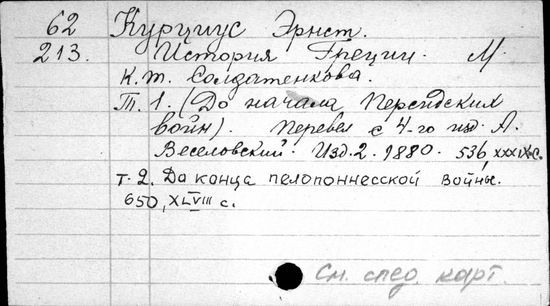 62 Курциус Эрнст.
213. История Греции. М.
К.т. Солдатенкова.
Т. 1. (До начала Персидских
войн). Перевел с 4-го изд. А.
Веселовский. Изд. 2. 1880. 536, XXXIX с.
т. 2. До конца пелопоннесской войны.
650, XLVIII с.
См. спец. карт.